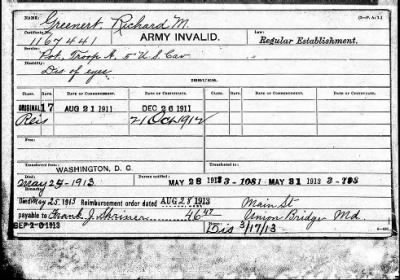 NAME: Greenert, Richard M. (3-P. A.-1.)
Certificate No. 1167441 ARMY INVALID. Law: Regular Establishment.
Service: Pvt, Troop A, 5" U S Cav
Disability: Dis of eyes
CLASS. RATE. DATE OF COMMENCEMENT. DATE OF CERTIFICATE. CLASS. RATE. DATE OF COMMENCEMENT. DATE OF CERTIFICATE.
ORIGINAL 17 AUG 21 1911 DEC 26 1911
Reis 21 Oct 1912
Transferred from Transferred to
WASHINGTON, D. C.
Died: May 25-1913 Bureau notified MAY 28 1913 3-1081 MAY 31 1913 3-
Died May 25, 1913 Reimbursement order dated AUG 28 1913 Main St
payable to Frank J. Shriner 46 47 Union Bridge Md.
SEP 2-0 1913 Dis 3/17/13